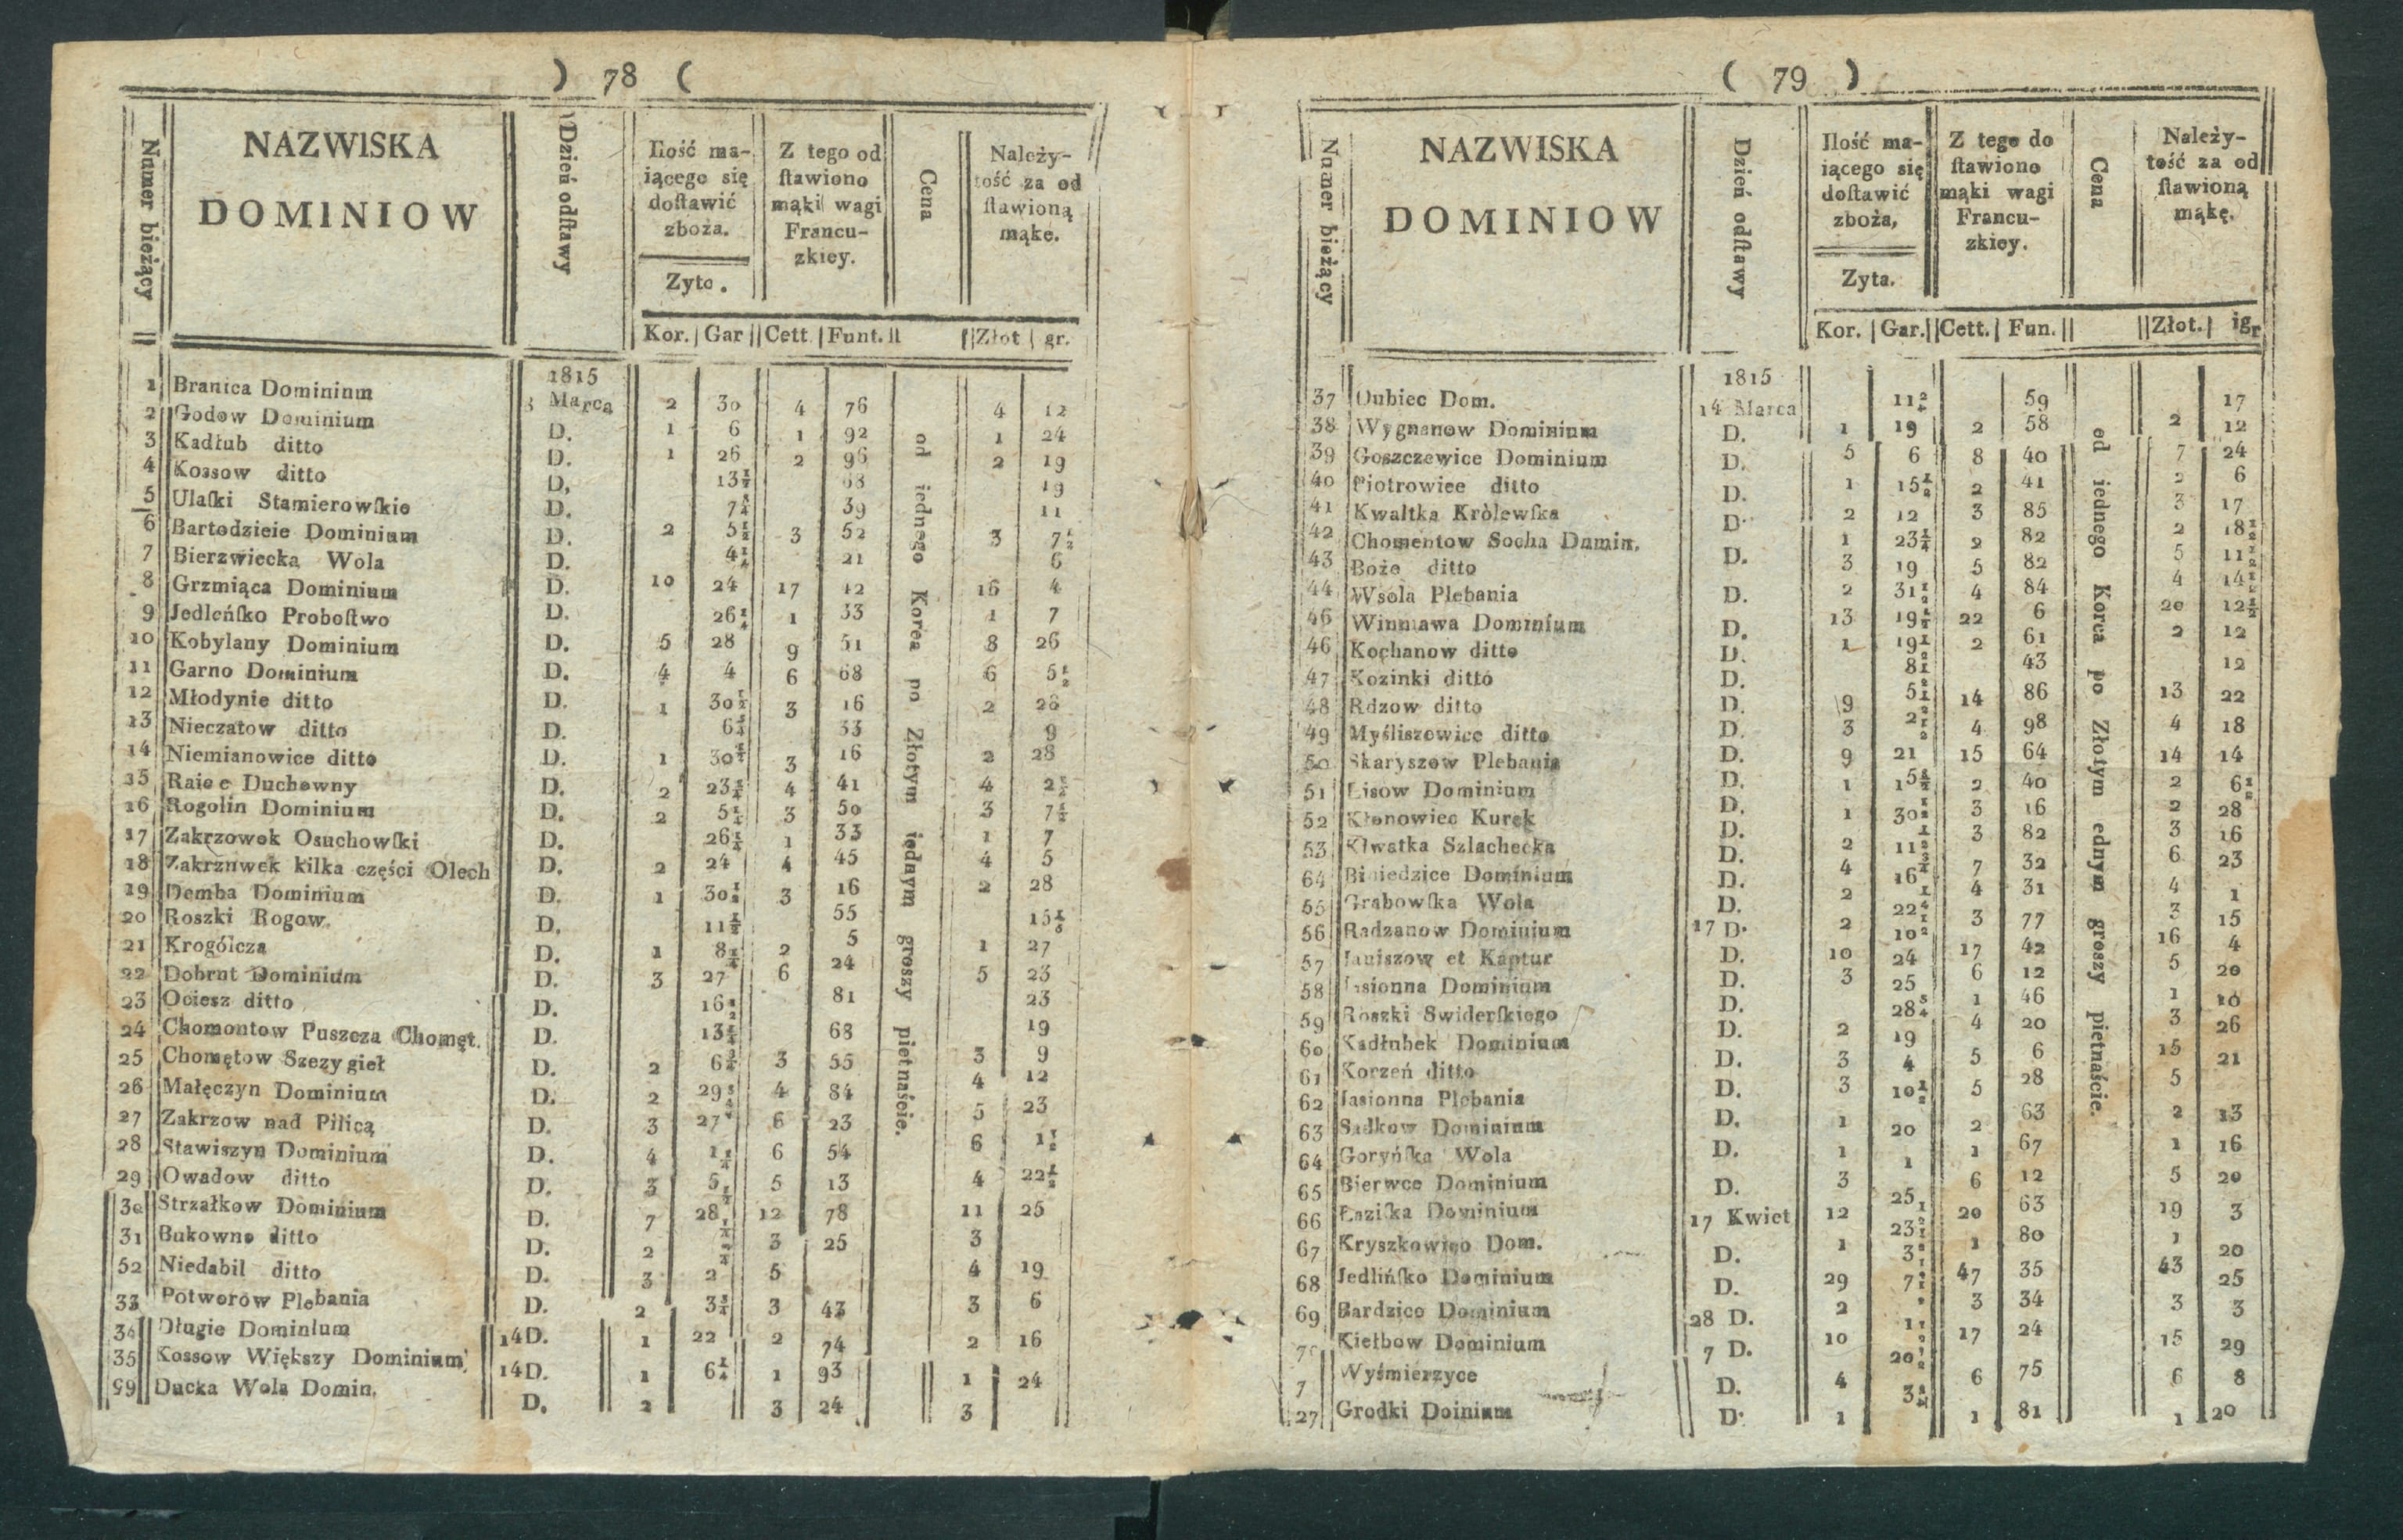 ) 78 (
Numer bieżący
NAZWISKA
DOMINIOW
Dzień odſtawy
Ilość ma-
iącego się
doſtawić
zboża.
Zyto.
Z tego od
ſtawiono
mąki wagi
Francu-
zkiey.
Cena
Należy-
tość za od
ſtawioną
mąke.
Kor. | Gar || Cett | Funt. || Złot | gr.
1815
1 Branica Dominium Marca 2 30 4 76 4 12
2 Godow Dominium D. 1 6 1 92 1 24
3 Kadłub ditto D. 1 26 2 96 2 19
4 Kossow ditto D, 13½ 68 19
5 Ulaſki Stamierowſkie D. 39 11
6 Bartodzieie Dominium D. 2 5½ 3 52 3 7½
7 Bierzwiecka Wola D. 4¼ 21 6
8 Grzmiąca Dominium D. 10 24 17 42 16 4
9 Jedleńſko Proboſtwo D. 26¼ 1 33 1 7
10 Kobylany Dominium D. 5 28 9 51 8 26
11 Garno Dominium D. 4 4 6 68 6 5½
12 Młodynie ditto D. 1 30½ 3 16 2 28
13 Nieczatow ditto D. 33 9
14 Niemianowice ditto D. 1 30½ 3 16 2 28
15 Raiec Duchowny D. 2 4 41 4 2½
16 Rogolin Dominium D. 2 5¼ 3 50 3 7½
17 Zakrzowek Osuchowſki D. 26¼ 1 33 1 7
18 Zakrznwek kilka części Olech D. 2 24 4 45 4 5
19 Demba Dominium D. 1 30½ 3 16 2 28
20 Roszki Rogow. D. 11½ 55
21 Krogólcza D. 1 8¼ 2 5 1 27
22 Dobrut Dominium D. 3 27 6 24 5 23
23 Ociesz ditto D. 16½ 81 23
24 Chomontow Puszcza Chomęt. D. 68 19
25 Chomętow Szezygieł D. 2 3 55 3 9
26 Małęczyn Dominium D. 2 4 84 4 12
27 Zakrzow nad Pilicą D. 3 27 6 23 5 23
28 Stawiszyn Dominium D. 4 6 54 6 1½
29 Owadow ditto D. 3 5 13 4 22½
30 Strzałkow Dominium D. 7 28 12 78 11 25
31 Bukowno ditto D. 2 3 25 3
52 Niedabil ditto D. 3 2 5 4 19
33 Potworow Plebania D. 2 3 43 3 6
34 Długie Dominium 14 D. 1 22 2 74 2 16
35 Kossow Większy Dominium 14 D. 1 6¼ 1 93 1 24
Ducka Wola Domin. D. 2 3 24 3
od iednego Korca po Złotym iednym groszy pietnaście.
( 79 )
Numer bieżący
NAZWISKA
DOMINIOW
Dzień odſtawy
Ilość ma-
iącego się
doſtawić
zboża,
Zyta.
Z tego do
ſtawiono
mąki wagi
Francu-
zkiey.
Cena
Należy-
tość za od
ſtawioną
mąkę.
Kor. | Gar. || Cett. | Fun. || || Złot. | igr
1815
37 Dubiec Dom. 14 Marca 59 17
38 Wygnanow Dominium D. 1 19 2 58 2 12
39 Goszczewice Dominium D. 5 6 8 40 7 24
40 Piotrowice ditto D. 1 15½ 2 41 2 6
41 Kwaltka Kròlewſka D. 2 12 3 85 3 17
42 Chomentow Socha Dumin. 1 2 82 2 18½
43 Boże ditto D. 3 19 5 82 5 11½
44 Wsola Plebania D. 2 31½ 4 84 4 14½
46 Winniawa Dominium D. 13 19½ 22 6 20 12½
46 Kochanow ditto D. 1 19½ 2 61 2 12
47 Kozinki ditto D. 43 12
48 Rdzow ditto D. 9 14 86 13 22
49 Myśliszewice ditto D. 3 4 98 4 18
50 Skaryszew Plebania D. 9 21 15 64 14 14
51 Lisow Dominium D. 1 2 40 2 6½
52 Klonowiec Kurek D. 1 30½ 3 16 2 28
53 Klwatka Szlachecka D. 2 11 3 82 3 16
64 Biniedzice Dominium D. 4 16 7 32 6 23
55 Grabowſka Wola D. 2 22 4 31 4 1
56 Radzanow Dominium 17 D. 2 10 3 77 3 15
57 Janiszow et Kaptur D. 10 24 17 42 16 4
58 Jasionna Dominium D. 3 25 6 12 5 20
59 Roszki Swiderſkiego D. 28 1 46 1 10
60 Kadłubek Dominium D. 2 19 4 20 3 26
61 Korzeń ditto D. 3 4 5 6 15 21
62 Jasionna Plebania D. 3 10½ 5 28 5
63 Sadkow Dominium D. 1 20 2 63 2 13
64 Goryńſka Wola D. 1 1 1 67 1 16
65 Bierwce Dominium D. 3 25 6 12 5 20
66 Łaziſka Dominium 17 Kwiet 12 23 20 63 19 3
67 Kryszkowico Dom. D. 1 3 1 80 1 20
68 Jedlińſko Dominium D. 29 7 47 35 43 25
69 Bardzice Dominium 28 D. 2 3 34 3 3
Kiełbow Dominium 7 D. 10 20 17 24 15 29
7 Wyśmierzyce D. 4 6 75 6 8
27 Grodki Doinium D. 1 1 81 1 20
od iednego Korca po Złotym ednym groszy pietnaście.